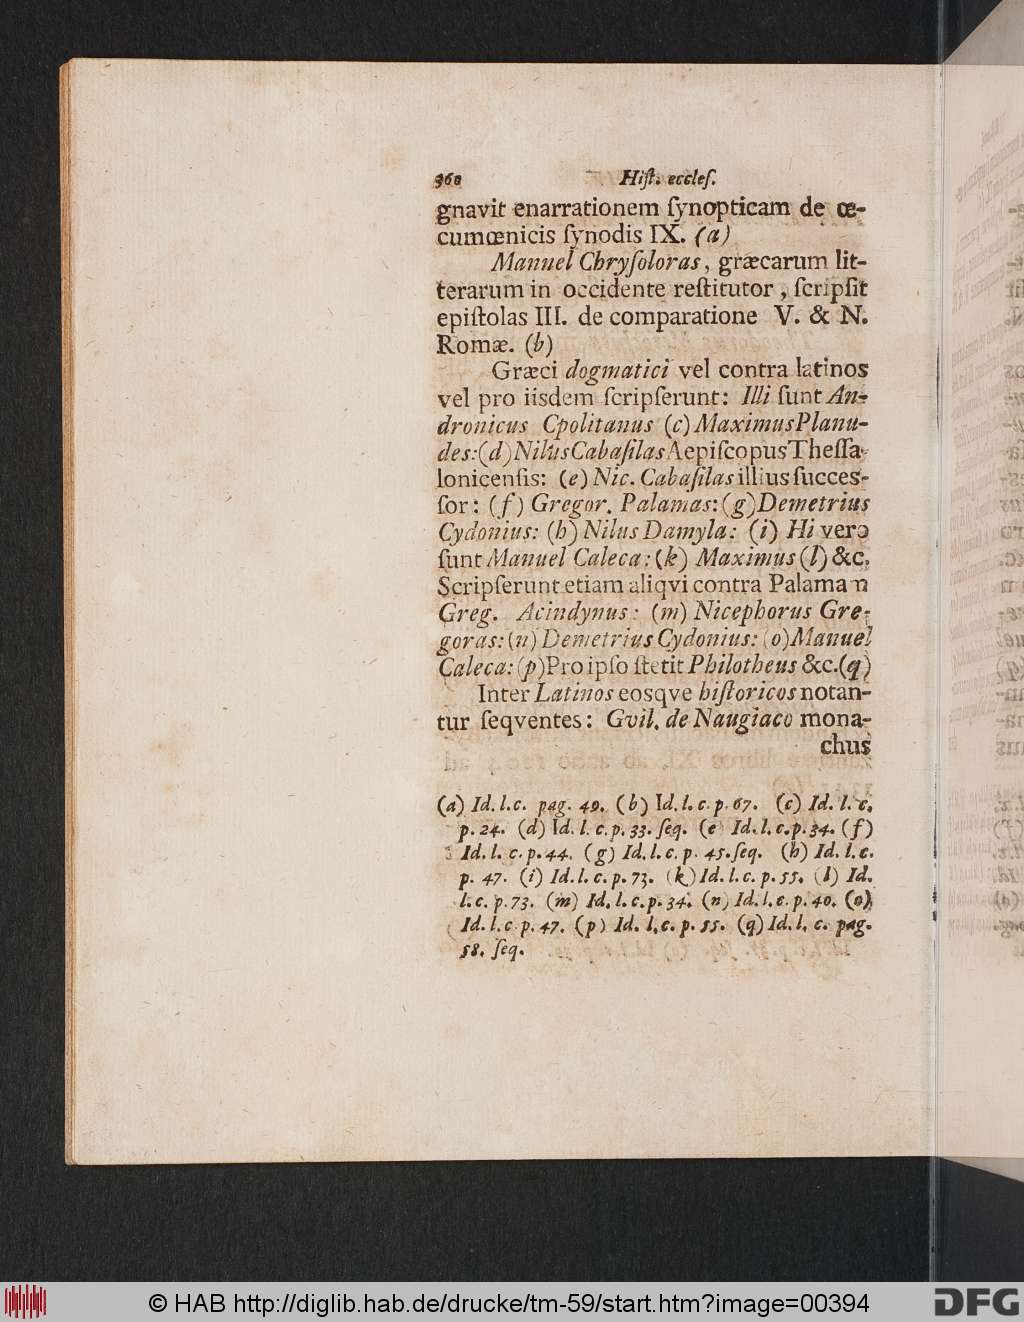 360 Hiſt. eccleſ.
gnavit enarrationem ſynopticam de œ-
cumœnicis ſynodis IX. (a)
Manuel Chryſoloras, græcarum lit-
terarum in occidente reſtitutor, ſcripſit
epiſtolas III. de comparatione V. & N.
Romæ. (b)
Græci dogmatici vel contra latinos
vel pro iisdem ſcripſerunt: Illi ſunt An-
dronicus Cpolitanus (c) Maximus Planu-
des: (d) Nilus Cabaſilas Aepiſcopus Theſſa-
lonicenſis: (e) Nic. Cabaſilas illius ſucces-
ſor: (f) Gregor. Palamas: (g) Demetrius
Cydonius: (h) Nilus Damyla: (i) Hi vero
ſunt Manuel Caleca: (k) Maximus (l) &c.
Scripſerunt etiam aliqvi contra Palaman
Greg. Acindynus: (m) Nicephorus Gre-
goras: (n) Demetrius Cydonius: (o) Manuel
Caleca: (p) Pro ipſo ſtetit Philotheus &c. (q)
Inter Latinos eosqve hiſtoricos notan-
tur ſeqventes: Gvil. de Naugiaco mona-
chus
(a) Id. l. c. pag. 49. (b) Id. l. c. p. 67. (c) Id. l. c.
p. 24. (d) Id. l. c. p. 33. ſeq. (e) Id. l. c. p. 34. (f)
Id. l. c. p. 44. (g) Id. l. c. p. 45. ſeq. (h) Id. l. c.
p. 47. (i) Id. l. c. p. 73. (k) Id. l. c. p. 55. (l) Id.
l. c. p. 73. (m) Id. l. c. p. 34. (n) Id. l. c. p. 40. (o)
Id. l. c. p. 47. (p) Id. l. c. p. 55. (q) Id. l. c. pag.
58. ſeq.
© HAB http://diglib.hab.de/drucke/tm-59/start.htm?image=00394 DFG